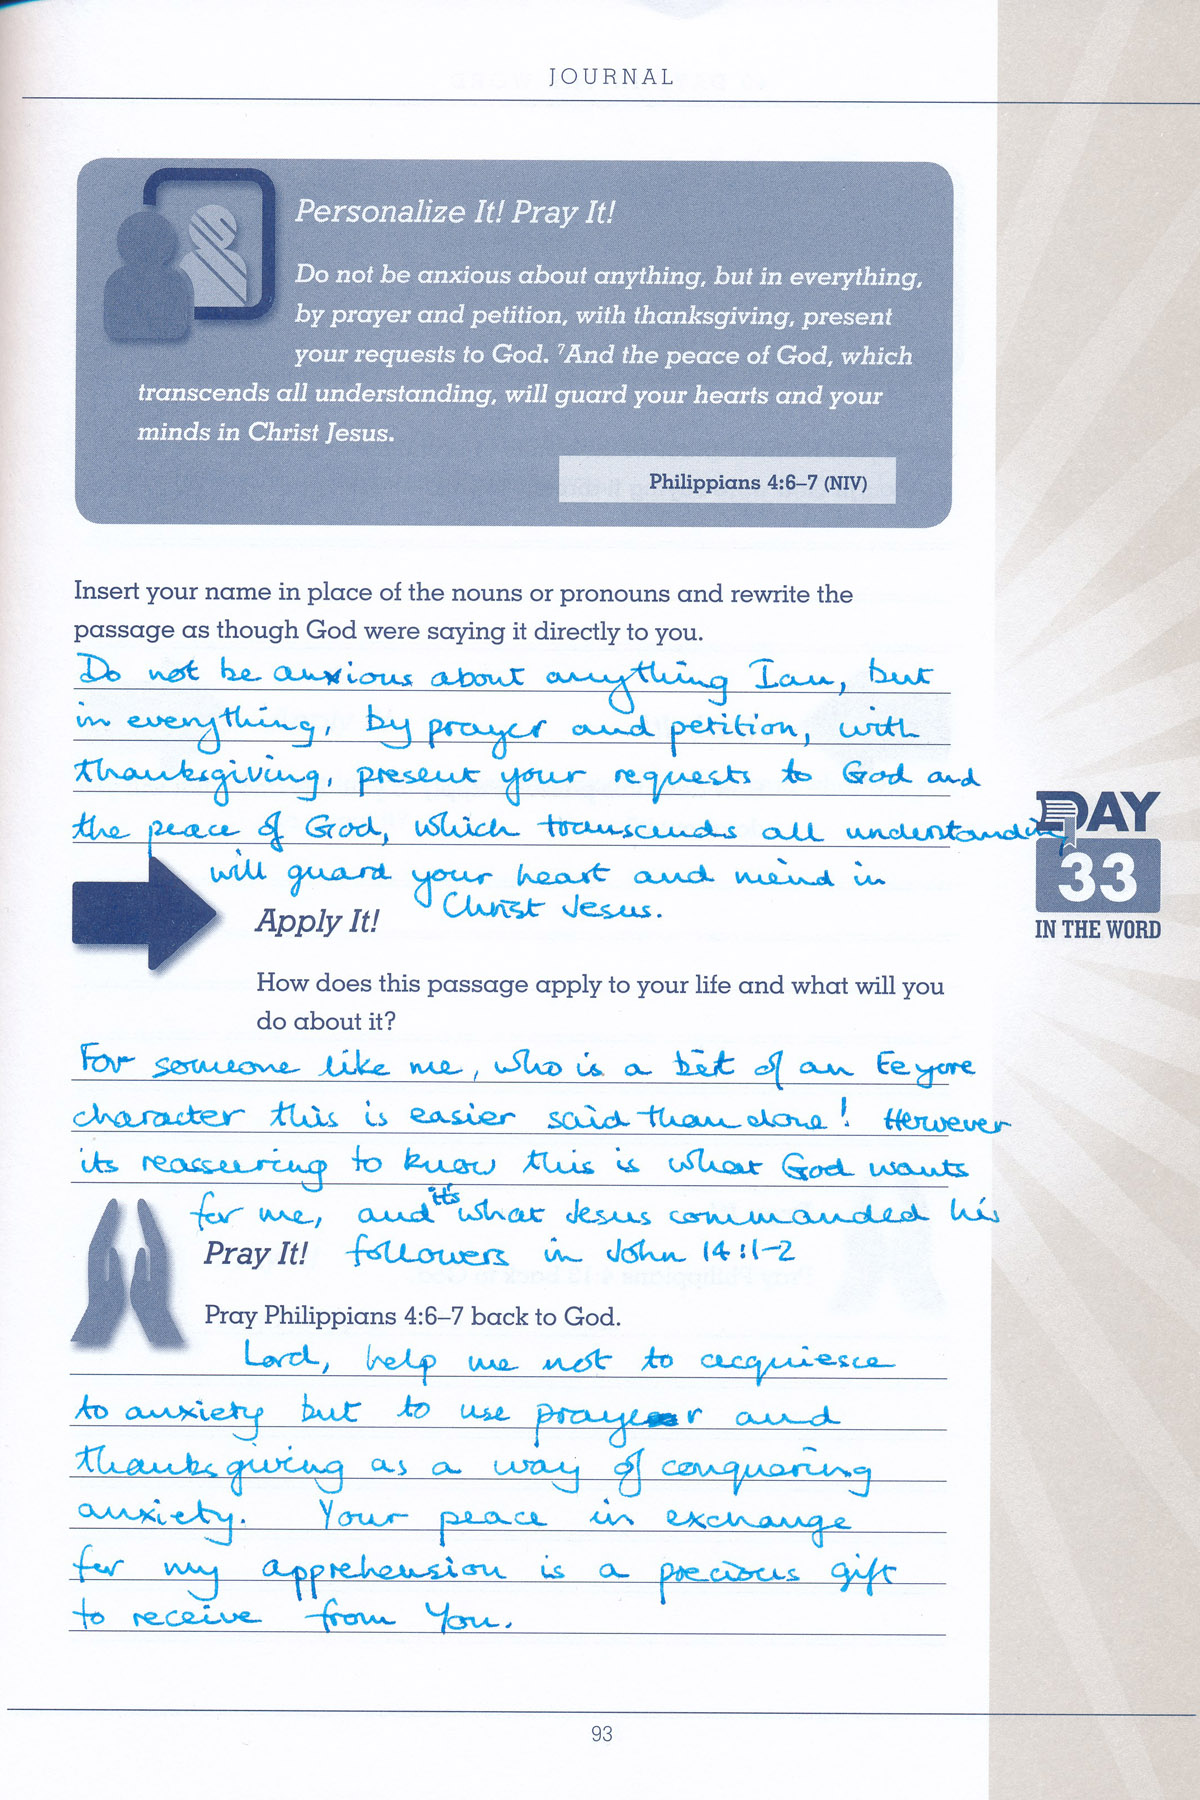 JOURNAL
Personalize It! Pray It!
Do not be anxious about anything, but in everything,
by prayer and petition, with thanksgiving, present
your requests to God. ⁷And the peace of God, which
transcends all understanding, will guard your hearts and your
minds in Christ Jesus.
Philippians 4:6–7 (NIV)
Insert your name in place of the nouns or pronouns and rewrite the
passage as though God were saying it directly to you.
Do not be anxious about anything Ian, but
in everything, by prayer and petition, with
thanksgiving, present your requests to God and
the peace of God, which transcends all understanding
will guard your heart and miend in
Christ Jesus.
DAY
33
IN THE WORD
Apply It!
How does this passage apply to your life and what will you
do about it?
For someone like me, who is a bit of an Eeyore
character this is easier said than done! However
its reasseuring to know this is what God wants
for me, and it's what Jesus commanded his
followers in John 14:1-2
Pray It!
Pray Philippians 4:6–7 back to God.
Lord, help me not to acquiesce
to anxiety but to use prayer and
thanksgiving as a way of conquering
anxiety. Your peace in exchange
for my apprehension is a precious gift
to receive from You.
93